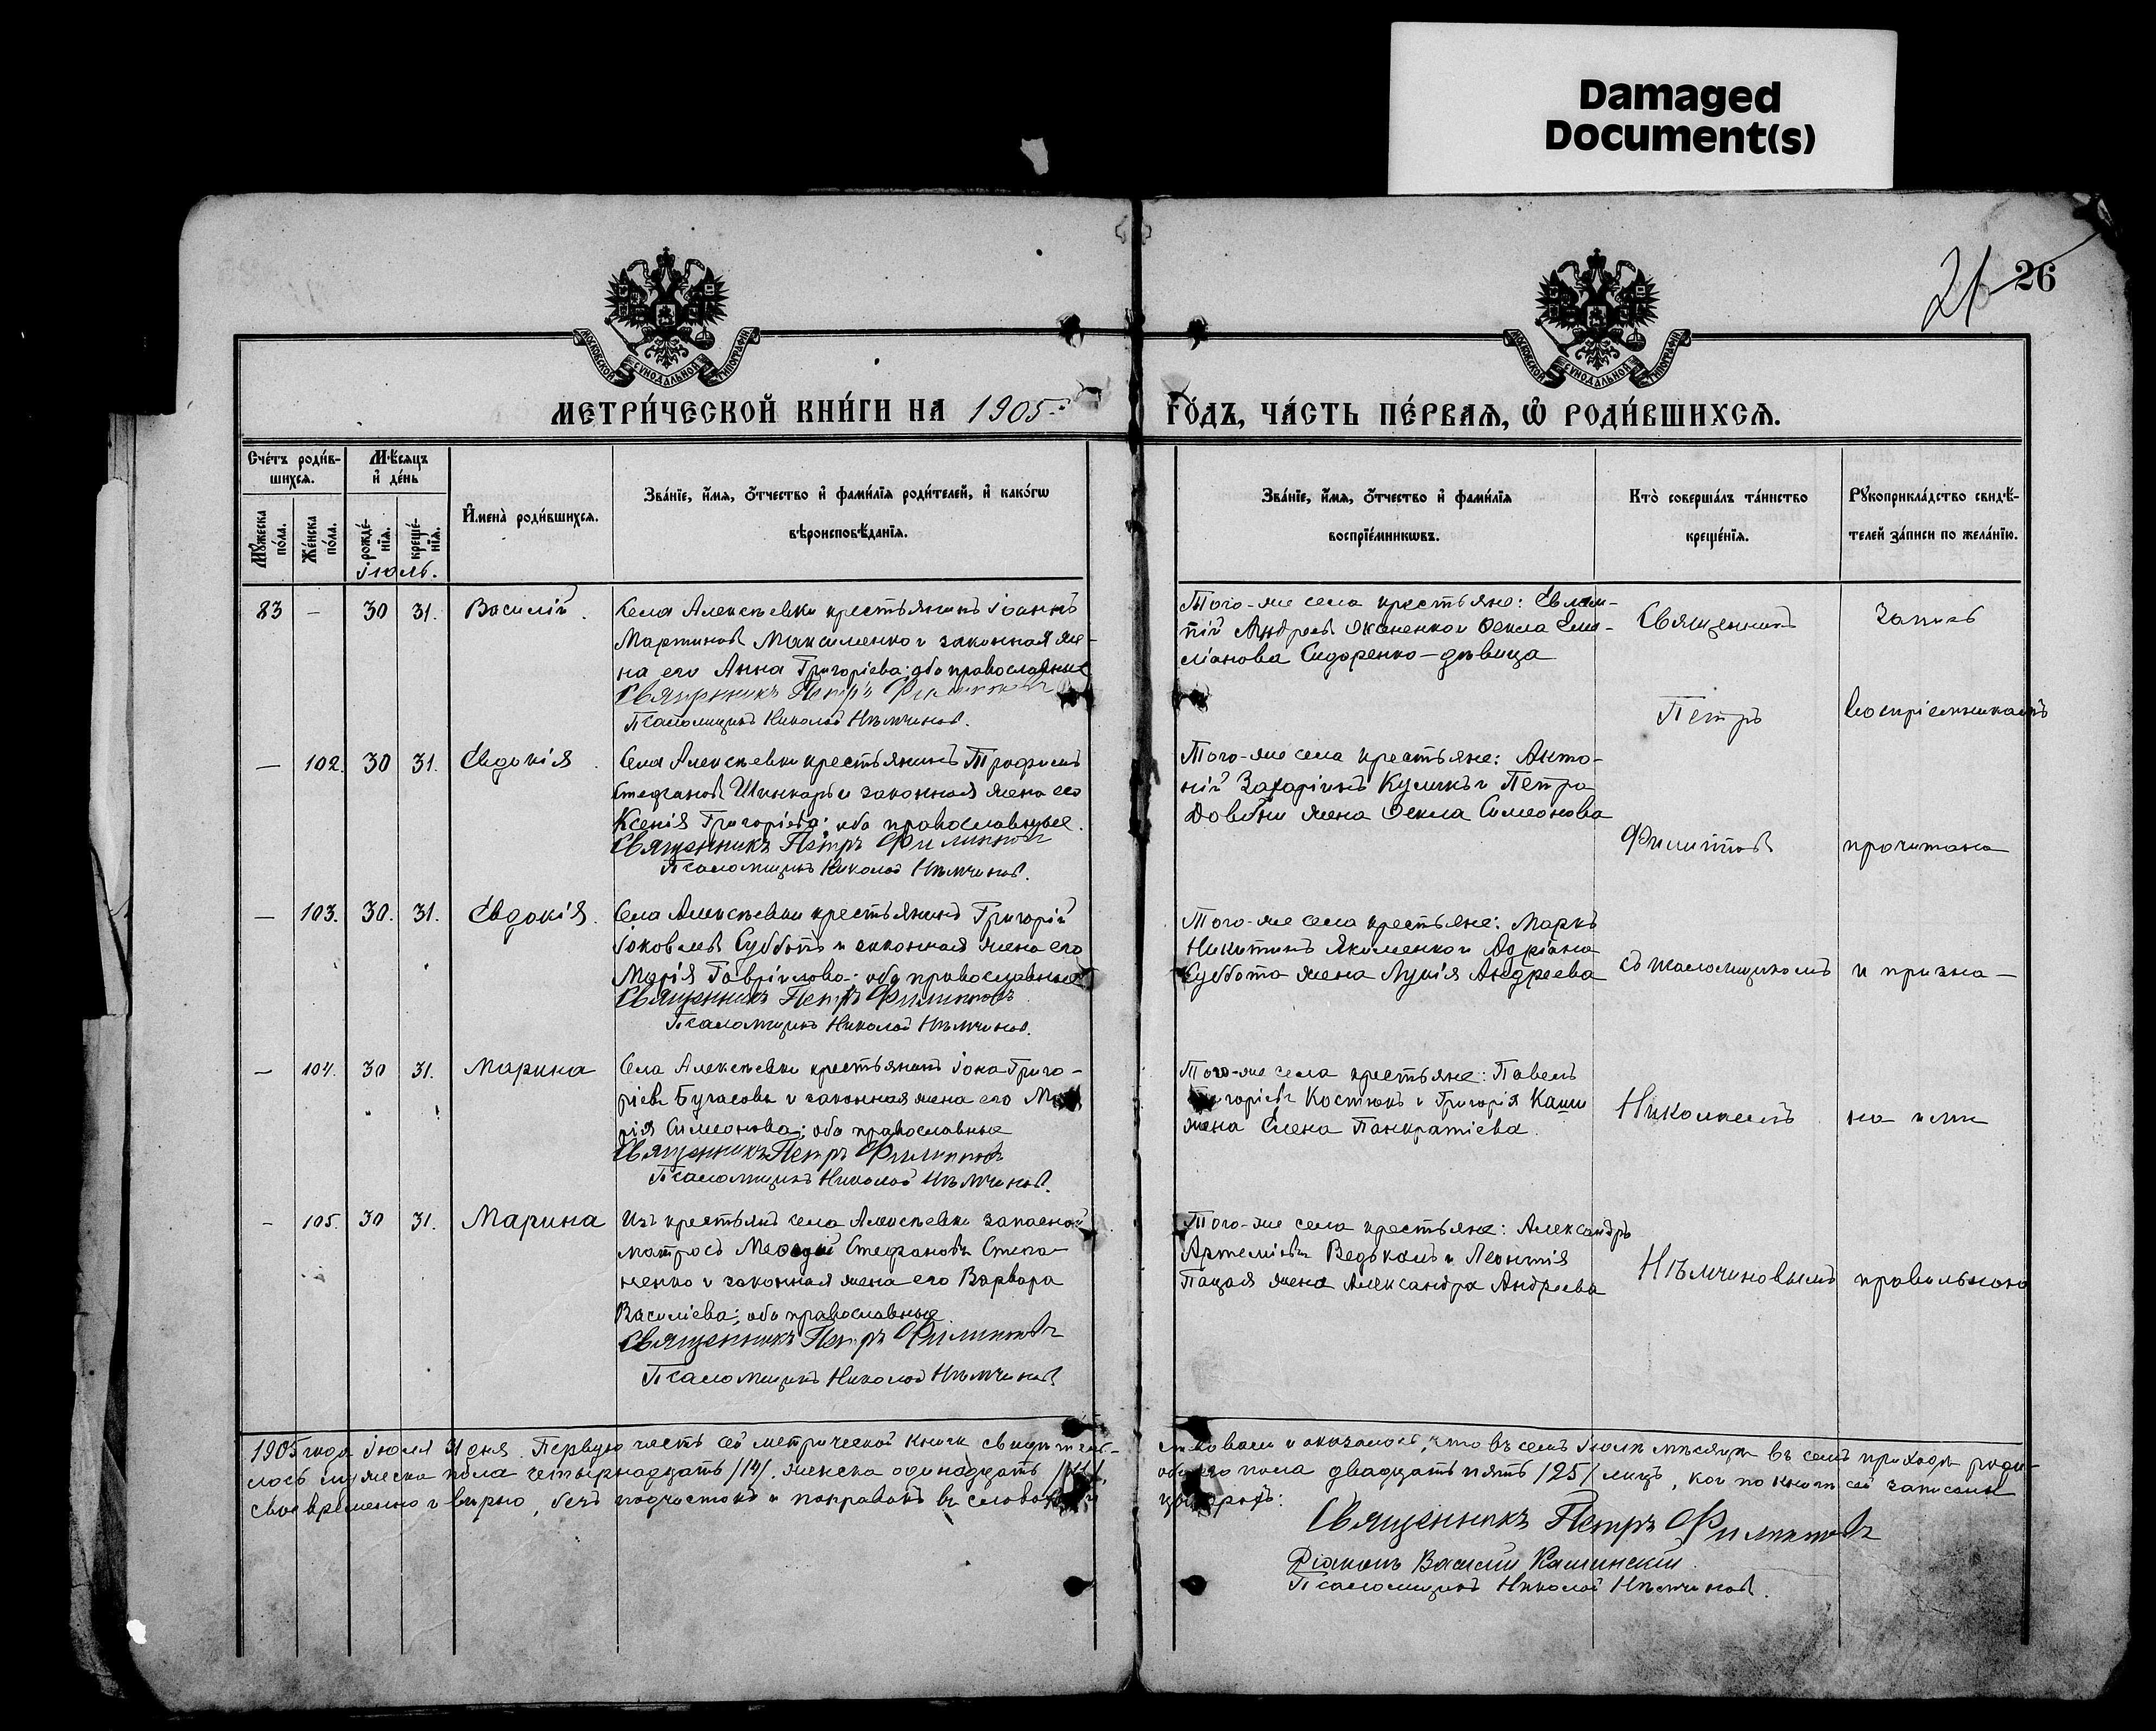 Damaged
Document(s)
21 26
МОСКОВСКОЙ СѴНОДАЛЬНОЙ ТИПОГРАФІИ
МОСКОВСКОЙ СѴНОДАЛЬНОЙ ТИПОГРАФІИ
МЕТРИ́ЧЕСКОЙ КНИ́ГИ НА 1905 ГО́ДЪ, ЧА́СТЬ ПЕ́РВАѦ, Ѡ҆ РОДИ́ВШИХСѦ.
Сче́тъ роди́в-
шихсѧ.
Мꙋ́жеска по́ла.
Же́нска по́ла.
Мѣ́сѧцъ
и҆ де́нь
рожде́-
нїѧ.
креще́-
нїѧ.
іюль.
И҆мена̀ роди́вшихсѧ.
Зва́нїе, и҆́мѧ, ѻ҆́тчество и҆ фами́лїѧ роди́телей, и҆ како́гѡ
вѣроисповѣ́данїѧ.
Зва́нїе, и҆́мѧ, ѻ҆́тчество и҆ фами́лїѧ
воспрїе́мникѡвъ.
Кто̀ соверша́лъ та́инство
креще́нїѧ.
Рꙋкоприкла́дство свидѣ́-
телей за́писи по жела́нїю.
83 — 30 31. Василій.
Села Алексѣевки крестьянинъ Іоаннъ
Мартиновъ Максименко и законная же-
на его Анна Григоріева; оба православные
Священникъ Петръ Филипповъ
Псаломщикъ Николай Нѣмчиновъ.
Того-же села крестьяне: Евлам-
пій Андреевъ и Ѳекла
Сидоренко – дѣвица
— 102. 30 31. Евдокія.
Села Алексѣевки крестьянинъ Трофимъ
Стефановъ Шинкарь и законная жена его
Ксенія Григоріева; оба православные.
Священникъ Петръ Филипповъ
Псаломщикъ Николай Нѣмчиновъ.
Того-же села крестьяне: Анто-
ній Захаріинъ Куликъ и Петра
Довбни жена Ѳекла Симеонова
— 103. 30. 31. Евдокія.
Села Алексѣевки крестьянинъ Григорій
Іаковлевъ Суббота и законная жена его
Марія Гавріилова: оба православные
Священникъ Петръ Филипповъ
Псаломщикъ Николай Нѣмчиновъ.
Того-же села крестьяне: Маркъ
Никитинъ Якименко и Адріана
Суббота жена Лукія Андреева
— 104. 30 31. Марина
Села Алексѣевки крестьянинъ Іона Григо-
ріевъ и законная жена его Ма
рія Симеонова; оба православные
Священникъ Петръ Филипповъ
Псаломщикъ Николай Нѣмчиновъ.
Того-же села крестьяне: Павелъ
Григоріевъ Костюкъ и Григорія Каши
жена Елена Панкратіева.
— 105. 30 31. Марина
Изъ крестьянъ села Алексѣевки запасной
матросъ Меѳодій Стефановъ Степа-
ненко и законная жена его Варвара
Василіева; оба православные.
Священникъ Петръ Филипповъ
Псаломщикъ Николай Нѣмчиновъ
Того-же села крестьяне: Александръ
Артеміевъ и Леонтія
Пацая жена Александра Андреева
Священникъ
Петръ
Филипповъ
съ псаломщикомъ
Николаемъ
Нѣмчиновымъ
Запись
воспріемникамъ
прочитана
и призна-
на ими
правильною
1905 года Іюля 31 дня. Первую часть сей метрической книги свидѣтель-
ствовали и оказалось, что въ семъ Іюлѣ мѣсяцѣ въ семъ приходѣ роди-
лось мужеска пола четырнадцать /14/, женска одинадцать /11/,
обоего пола двадцать пять /25/ лицъ, кои по книгѣ сей записаны
своевременно и вѣрно, безъ подчистокъ и поправокъ въ словахъ и
цифрахъ:
Священникъ Петръ Филипповъ
Діаконъ Василій Кашинскій.
Псаломщикъ Николай Нѣмчиновъ.